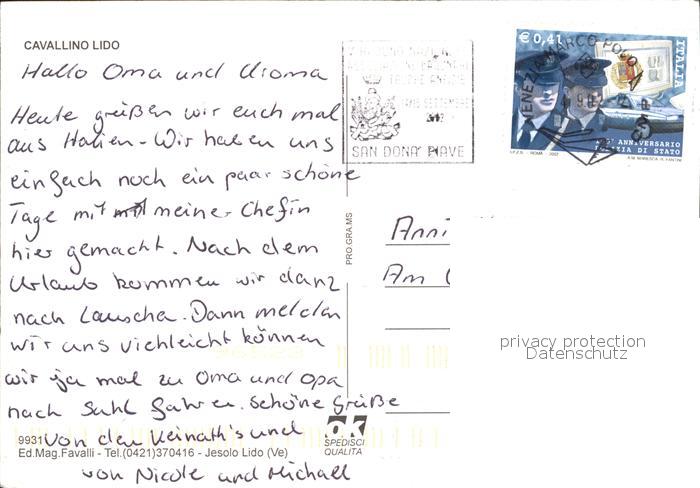 CAVALLINO LIDO
Hallo Oma und Uroma
Heute grüßen wir euch mal
aus Italien. Wir haben uns
einfach noch ein paar schöne
Tage mit meiner Chefin
hier gemacht. Nach dem
Urlaub kommen wir dann
nach Lauscha. Dann melden
wir uns vielleicht können
wir ja mal zu Oma und Opa
nach Suhl fahren. Schöne Grüße
von den Keinath's und
von Nicole und Michael
9931
Ed.Mag.Favalli - Tel.(0421)370416 - Jesolo Lido (Ve)
PRO GRA.MS
SPEDISCI
QUALITA
SETTEMBRE
SAN DONA' PIAVE
€ 0,41
ITALIA
VENEZIA MARCO POLO
ANNIVERSARIO
POLIZIA DI STATO
I.P.Z.S. - ROMA - 2002
Anni
Am
privacy protection
Datenschutz